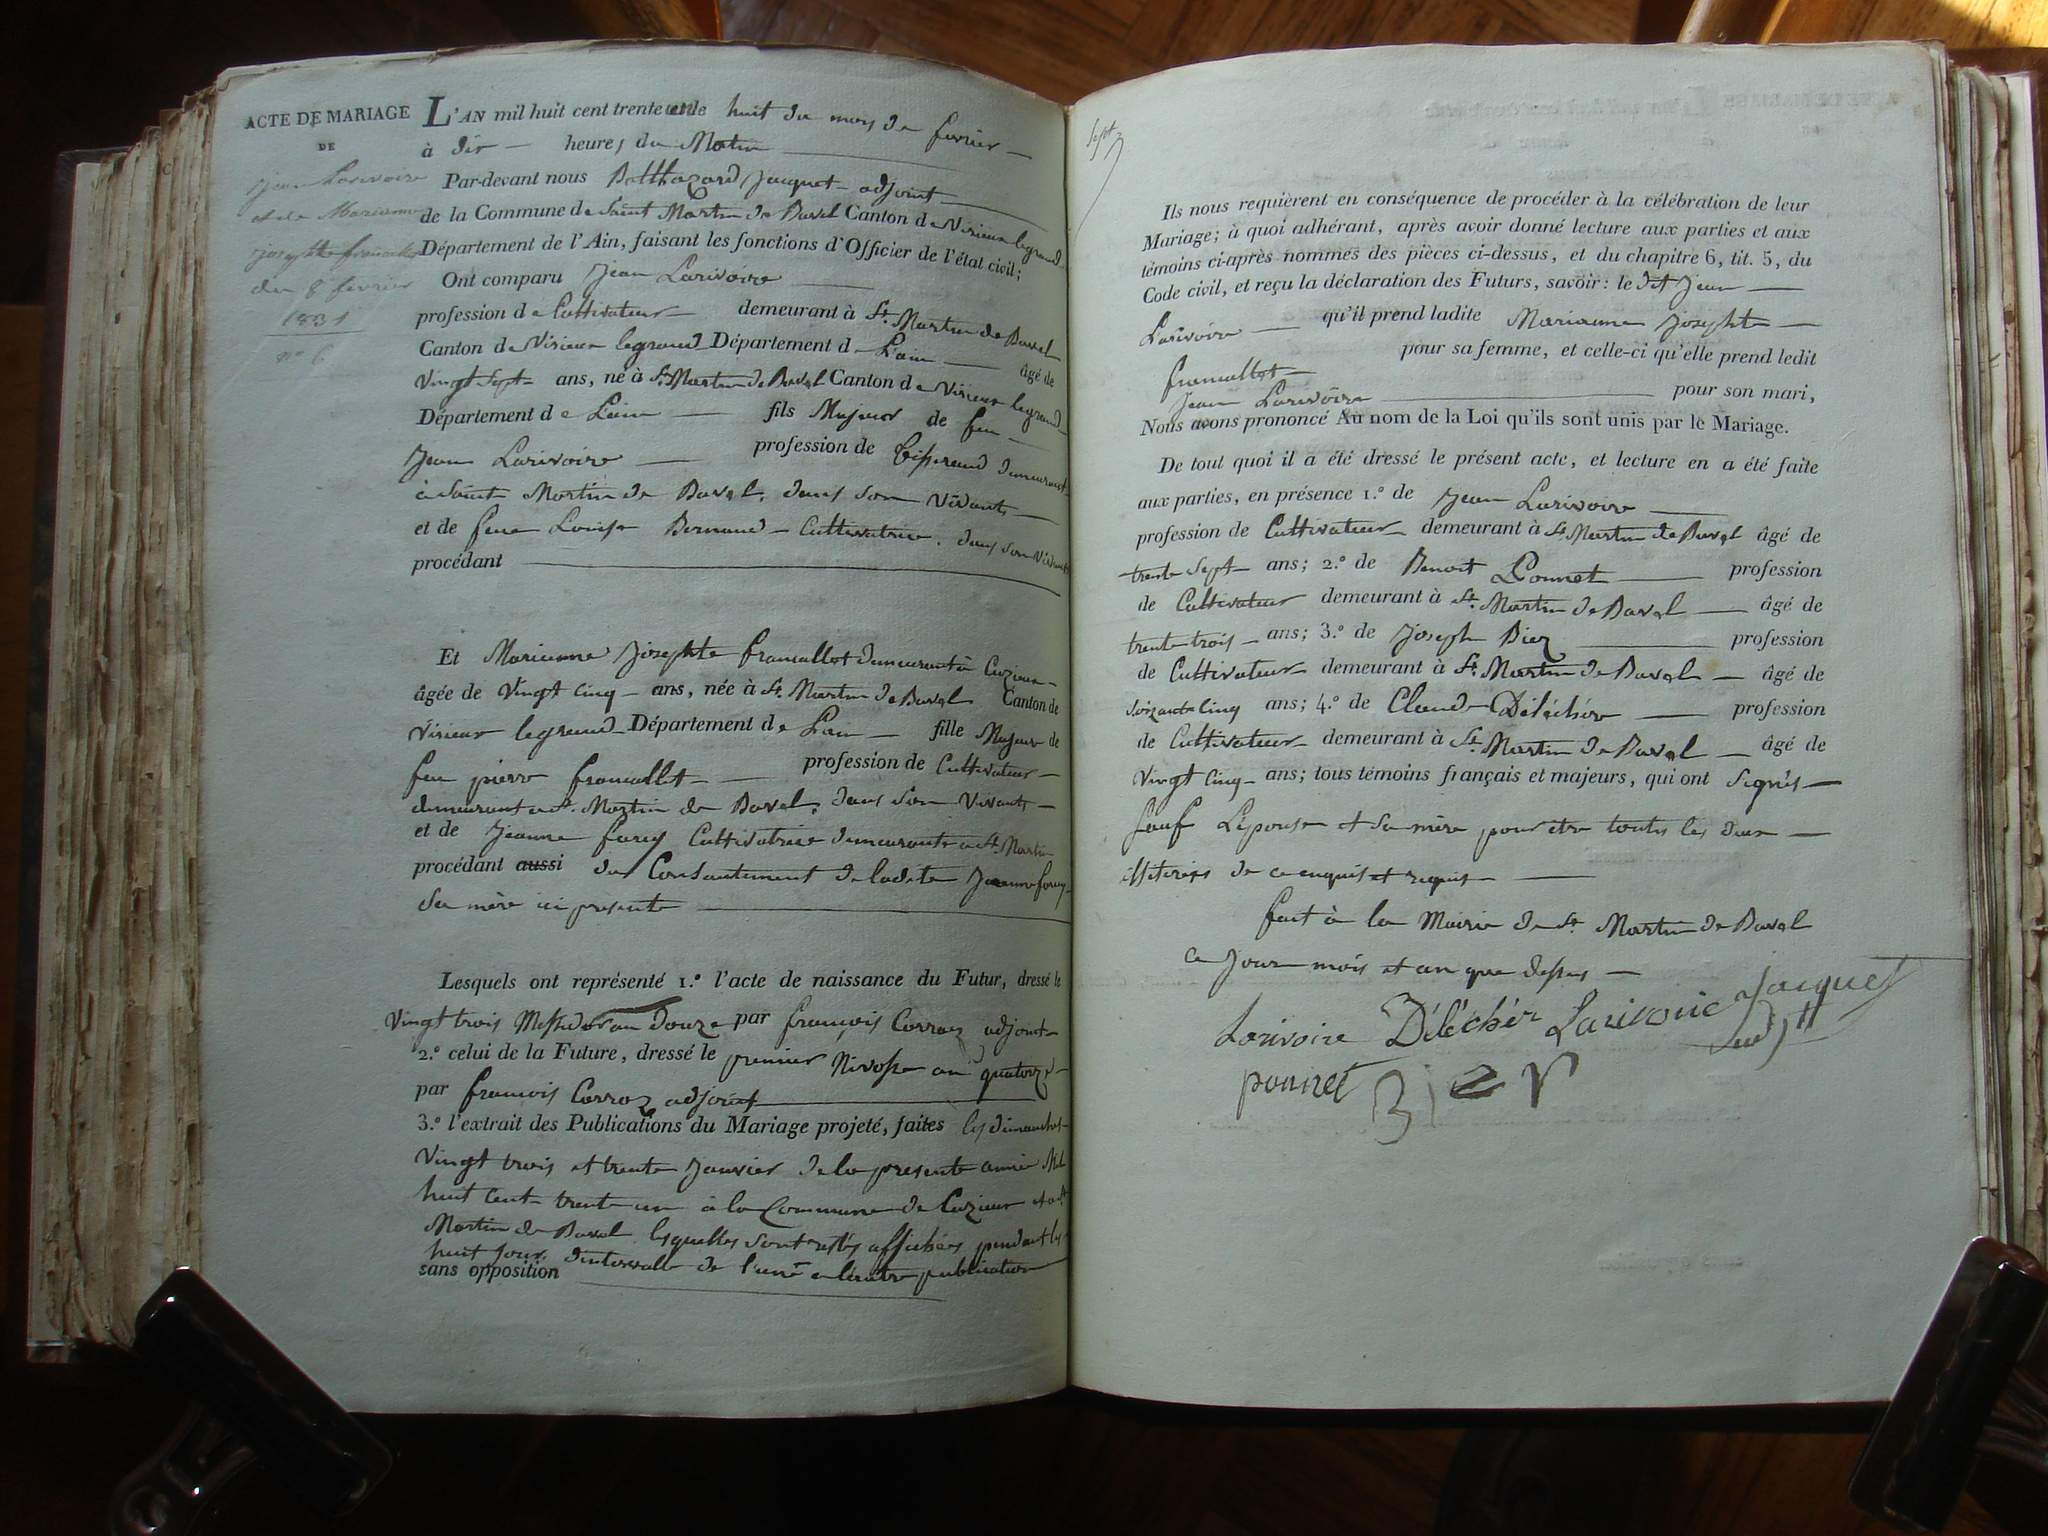 ACTE DE MARIAGE
DE
Jean Larivoire
et de Marianne
Josephte francallet
du 8 fevrier
1831
n° 6
L'AN mil huit cent trente un le huit du mois de fevrier
à dix heures du Matin
Par-devant nous Balthazard Jacquet adjoint
de la Commune de Saint Martin de Bavel Canton de Virieux legrand
Département de l'Ain, faisant les fonctions d'Officier de l'état civil;
Ont comparu Jean Larivoire
profession de Cultivateur demeurant à St. Martin de Bavel
Canton de Virieux legrand Département de L'ain âgé de
Vingt Sept ans, né à St. Martin de Bavel Canton de Virieux legrand
Département de Lain fils Majeur de feu
Jean Larivoire profession de Tisserand demeurant
à Saint Martin de Bavel, dans son Vivant
et de feue Louise Bernand Cultivatrice, dans son Vivant
procédant
Et Marianne Josephte francallet demeurant à Cuzieux
âgée de Vingt Cinq ans, née à St. Martin de Bavel Canton de
Virieux legrand Département de Lain fille Majeure de
feu pierre francallet profession de Cultivateur
demeurant a St. Martin de Bavel, dans son Vivant
et de Jeanne furey Cultivatrice demeurante a St. Martin
procédant aussi du Consentement de ladite Jeanne furey
Sa mère ici presente
Lesquels ont représenté 1.° l'acte de naissance du Futur, dressé le
Vingt trois Messidor an douze par françois Corraz adjoint
2.° celui de la Future, dressé le premier Nivose an quatorze
par françois Corraz adjoint
3.° l'extrait des Publications du Mariage projeté, faites les dimanches
Vingt trois et trente Janvier de la presente année Mil
huit Cent trente un à la Commune de Cuzieux et a St
Martin de Bavel lesquelles sont restés affichées pendant les
huit Jours d'intervalle de l'une a l'autre publication
sans opposition
Sept
Ils nous requièrent en conséquence de procéder à la célébration de leur
Mariage; à quoi adhérant, après avoir donné lecture aux parties et aux
témoins ci-après nommés des pièces ci-dessus, et du chapitre 6, tit. 5, du
Code civil, et reçu la déclaration des Futurs, savoir: le dit Jean
Larivoire qu'il prend ladite Marianne Josephte
francallet pour sa femme, et celle-ci qu'elle prend ledit
Jean Larivoire pour son mari,
Nous avons prononcé Au nom de la Loi qu'ils sont unis par le Mariage.
De tout quoi il a été dressé le présent acte, et lecture en a été faite
aux parties, en présence 1.° de Jean Larivoire
profession de Cultivateur demeurant à St. Martin de Bavel âgé de
trente Sept ans; 2.° de Benoit Ponnet profession
de Cultivateur demeurant à St. Martin de Bavel âgé de
trente trois ans; 3.° de Joseph Biez profession
de Cultivateur demeurant à St. Martin de Bavel âgé de
Soixante Cinq ans; 4.° de Claude Délécher profession
de Cultivateur demeurant à St. Martin de Bavel âgé de
Vingt Cinq ans; tous témoins français et majeurs, qui ont Signés
Sauf L'epouse et Sa mère pour etre toutes les deux
illitérées de ce enquis et requis
fait à la Mairie de St. Martin de Bavel
ce Jour mois et an que dessus
Larivoire Délécher Larivoire Jacquet
adjt
ponnet Biez